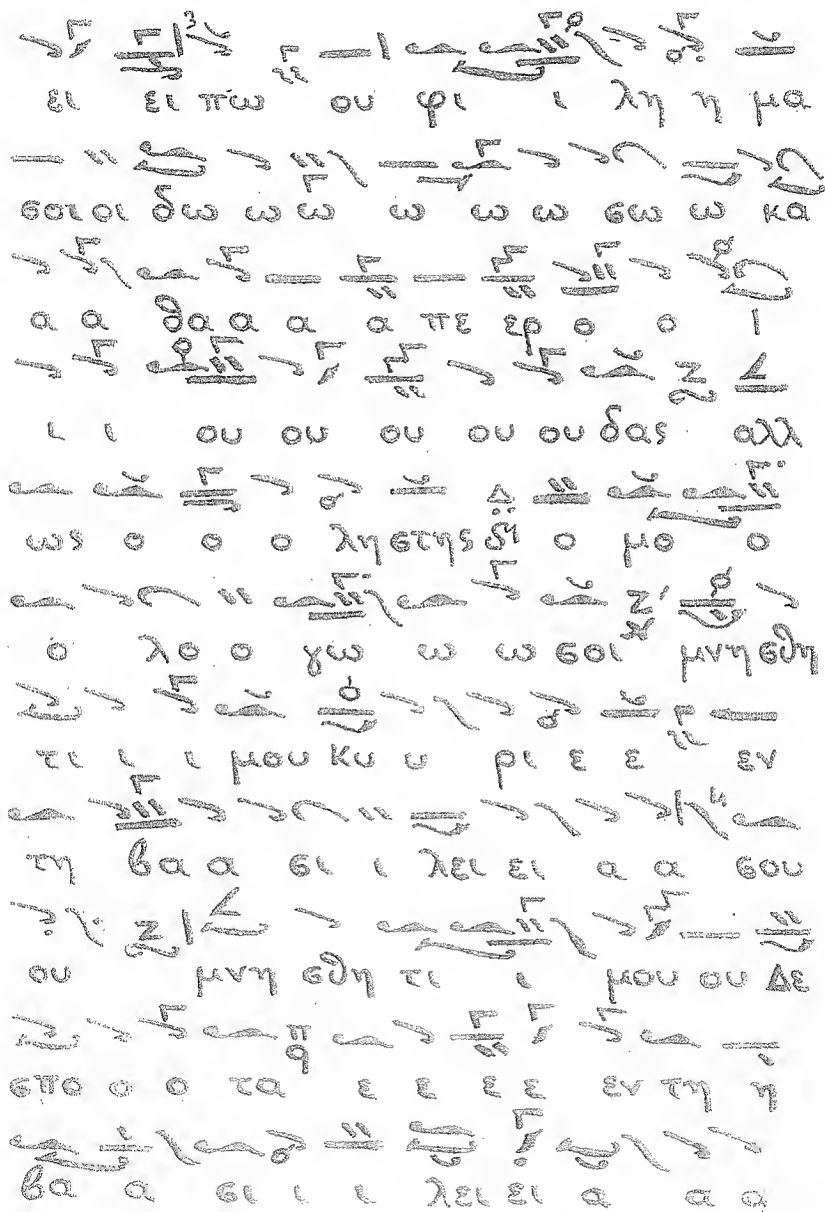 ει ει πω ου φι ι λη η μα
σοι οι δω ω ω ω ω ω σω ω κα
α α θα α α α πε ερ ο ο Ι
ι ι ου ου ου ου ου δας αλλ
ως ο ο ο λη στης δη ο μο ο
ο λο ο γω ω ω σοι μνη σθη
τι ι ι μου Κυ υ ρι ε ε εν
τη βα α σι ι λει ει α α σου
ου μνη σθη τι ι μου ου Δε
σπο ο ο τα ε ε ε ε εν τη η
βα α σι ι ι λει ει α α α